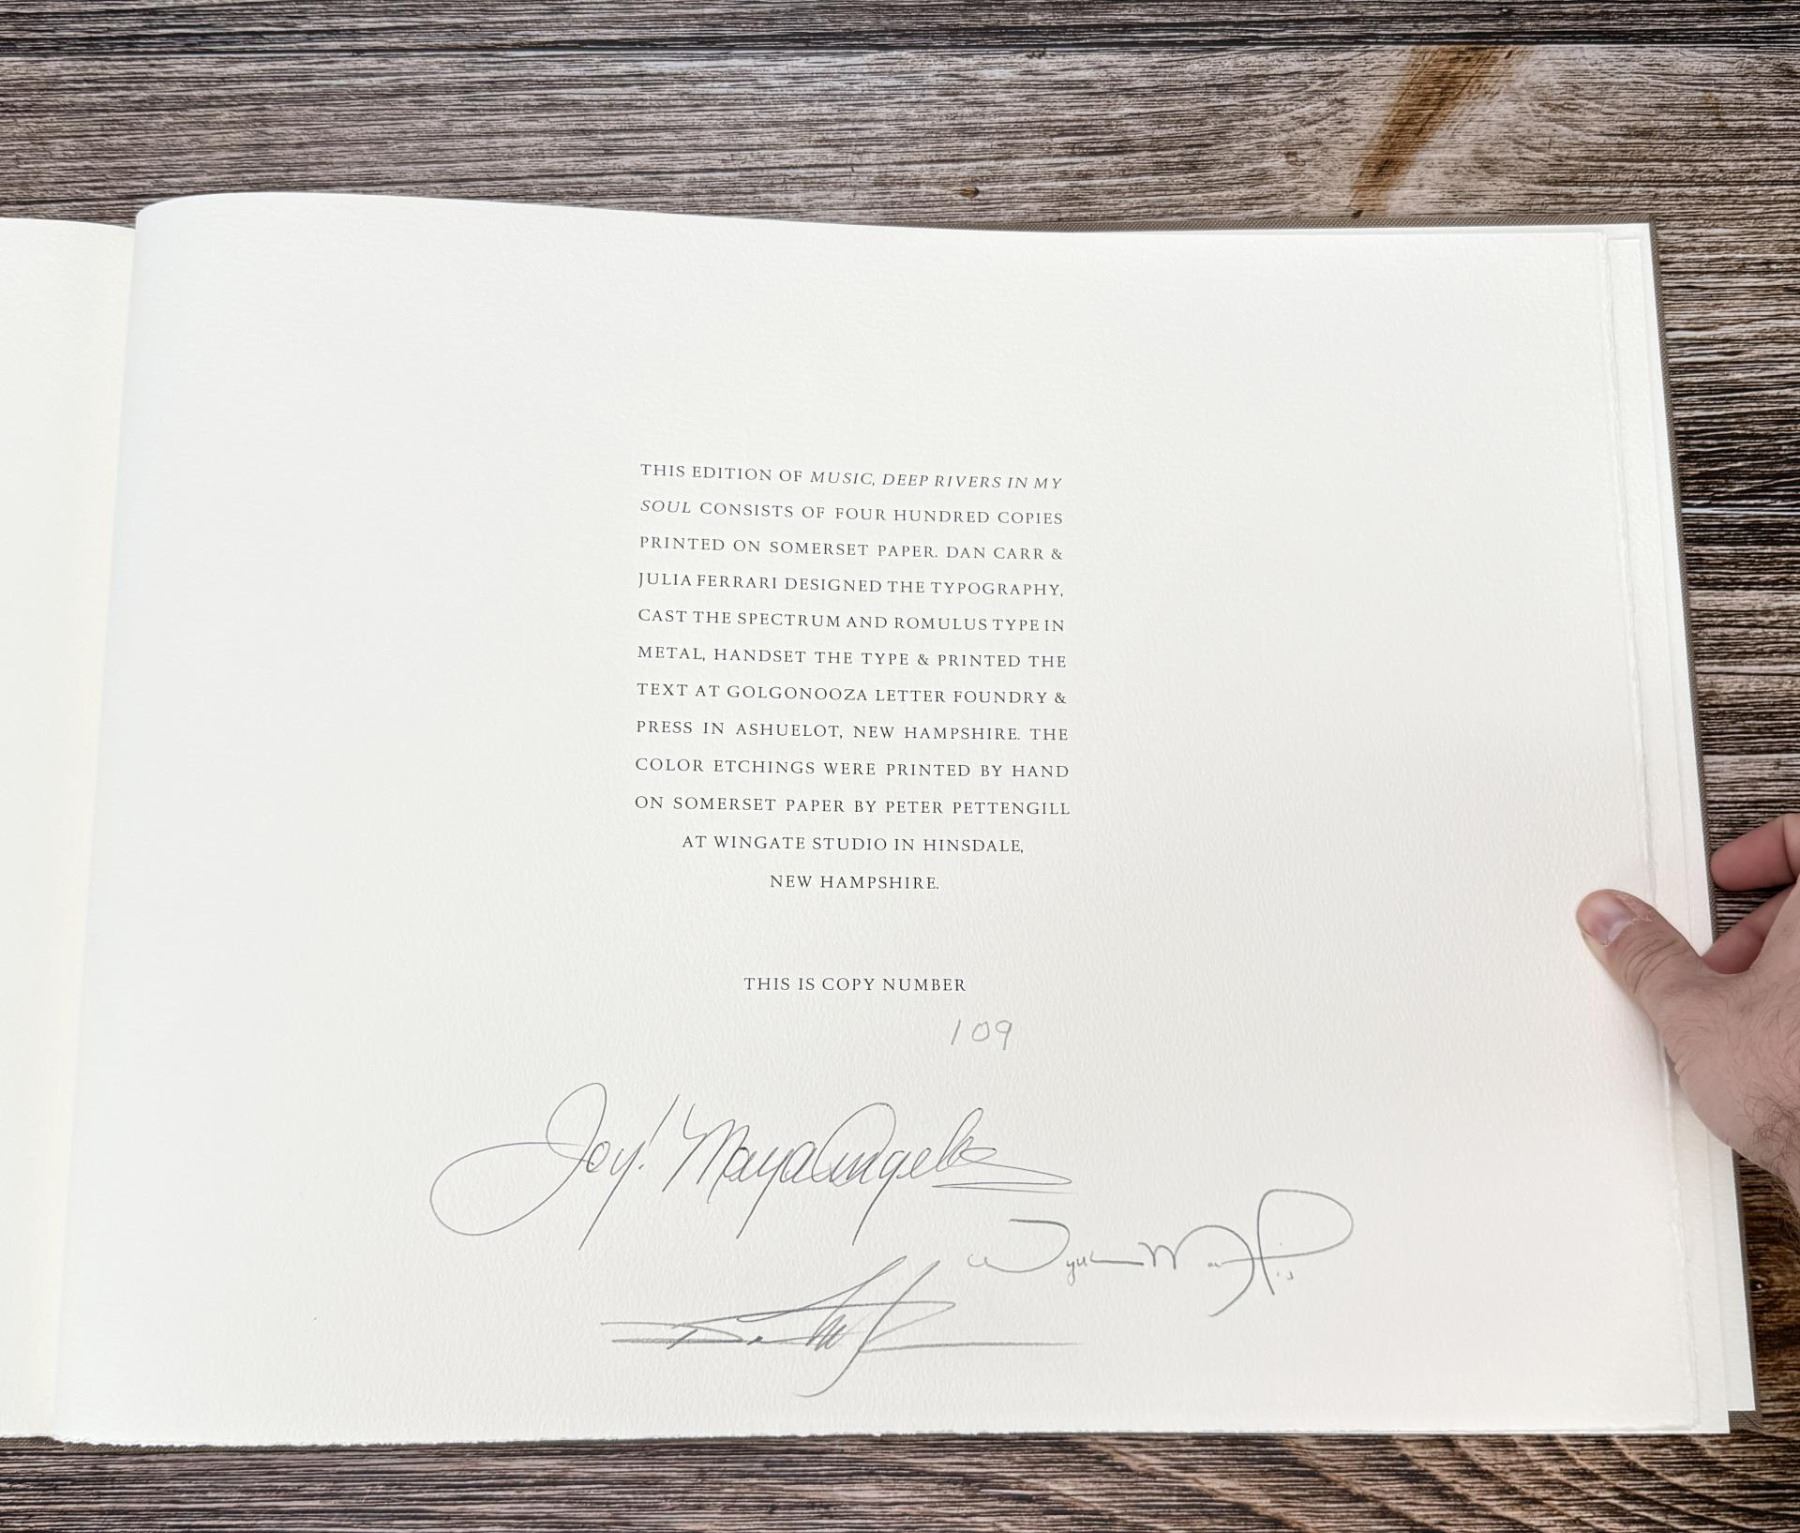 THIS EDITION OF MUSIC, DEEP RIVERS IN MY
SOUL CONSISTS OF FOUR HUNDRED COPIES
PRINTED ON SOMERSET PAPER. DAN CARR &
JULIA FERRARI DESIGNED THE TYPOGRAPHY,
CAST THE SPECTRUM AND ROMULUS TYPE IN
METAL, HANDSET THE TYPE & PRINTED THE
TEXT AT GOLGONOOZA LETTER FOUNDRY &
PRESS IN ASHUELOT, NEW HAMPSHIRE. THE
COLOR ETCHINGS WERE PRINTED BY HAND
ON SOMERSET PAPER BY PETER PETTENGILL
AT WINGATE STUDIO IN HINSDALE,
NEW HAMPSHIRE.
THIS IS COPY NUMBER
109
Joy! Maya Angelou
Wynton Marsalis